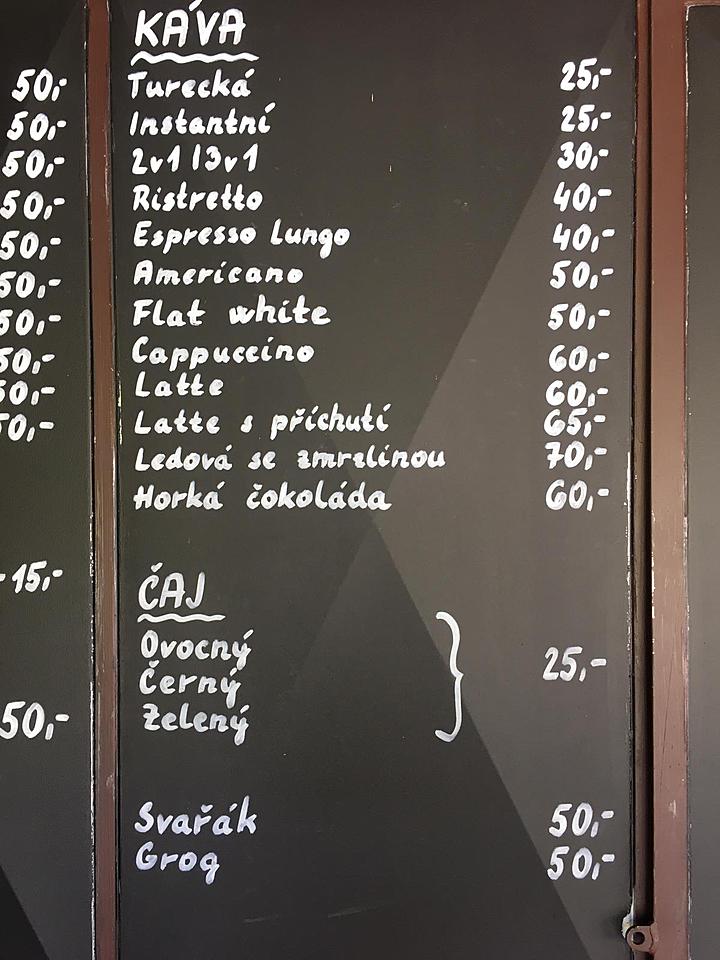 50,-
50,-
50,-
50,-
50,-
50,-
50,-
50,-
50,-
50,-
15,-
50,-
KÁVA
Turecká 25,-
Instantní 25,-
2v1 | 3v1 30,-
Ristretto 40,-
Espresso Lungo 40,-
Americano 50,-
Flat white 50,-
Cappuccino 60,-
Latte 60,-
Latte s příchutí 65,-
Ledová se zmrzlinou 70,-
Horká čokoláda 60,-
ČAJ
Ovocný
Černý 25,-
Zelený
Svařák 50,-
Grog 50,-